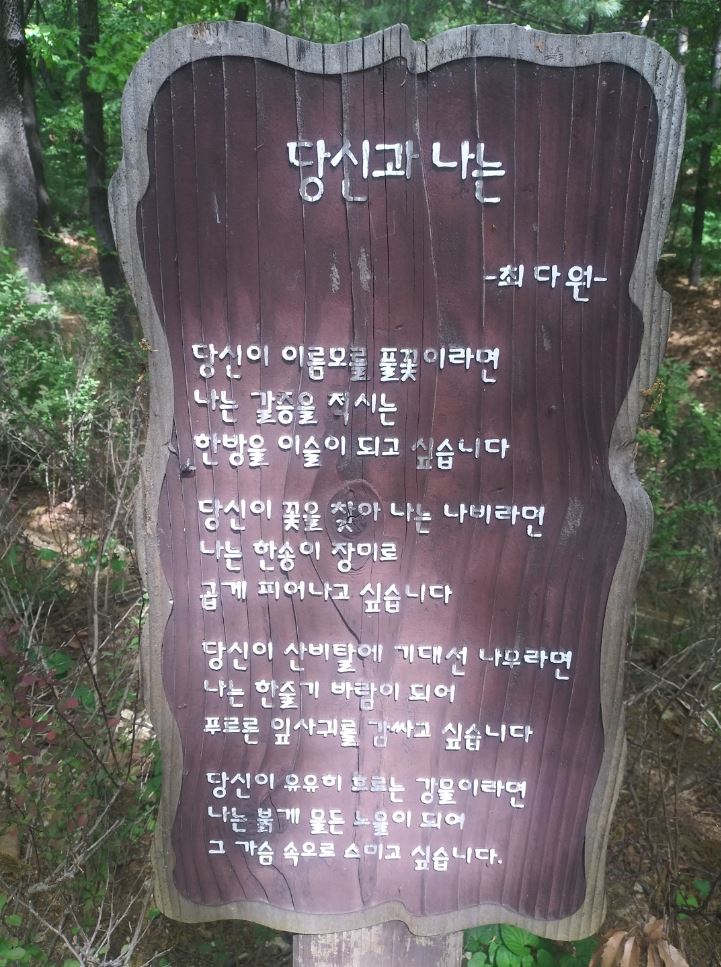 당신과 나는
-최다원-
당신이 이름모를 풀꽃이라면
나는 갈증을 적시는
한방울 이슬이 되고 싶습니다
당신이 꽃을 찾아 나는 나비라면
나는 한송이 장미로
곱게 피어나고 싶습니다
당신이 산비탈에 기대선 나무라면
나는 한줄기 바람이 되어
푸르른 잎사귀를 감싸고 싶습니다
당신이 유유히 흐르는 강물이라면
나는 붉게 물든 노을이 되어
그 가슴 속으로 스미고 싶습니다.